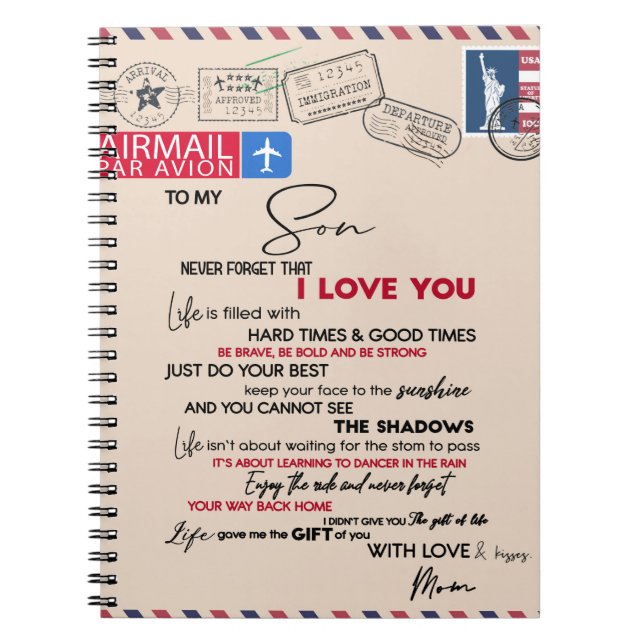 ARRIVAL
12345
APPROVED
12345
12345
IMMIGRATION
12345
DEPARTURE
APPROVED
12345
USA
STATUE OF
AIRMAIL
PAR AVION
TO MY
Son
NEVER FORGET THAT
I LOVE YOU
Life is filled with
HARD TIMES & GOOD TIMES
BE BRAVE, BE BOLD AND BE STRONG
JUST DO YOUR BEST
keep your face to the sunshine
AND YOU CANNOT SEE
THE SHADOWS
Life isn't about waiting for the stom to pass
IT'S ABOUT LEARNING TO DANCER IN THE RAIN
Enjoy the ride and never forget
YOUR WAY BACK HOME
I DIDN'T GIVE YOU The gift of life
Life gave me the GIFT of you
WITH LOVE & kisses.
Mom